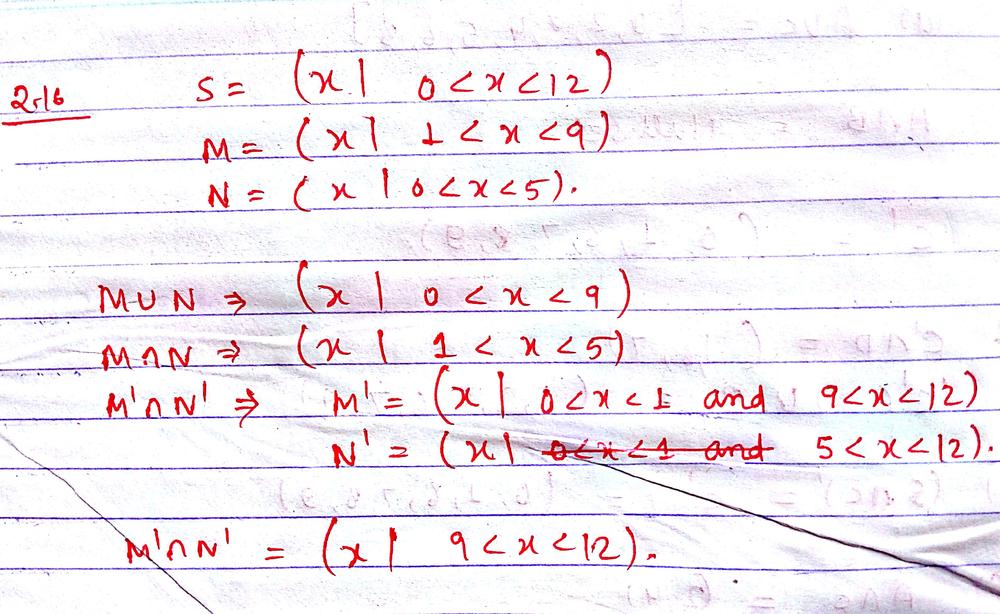 2.16 S = (x | 0 < x < 12)
M = (x | 1 < x < 9)
N = (x | 0 < x < 5).
M ∪ N ⇒ (x | 0 < x < 9)
M ∩ N ⇒ (x | 1 < x < 5)
M' ∩ N' ⇒ M' = (x | 0 < x < 1 and 9 < x < 12)
N' = (x | 0 < x < 1 and 5 < x < 12).
M' ∩ N' = (x | 9 < x < 12).